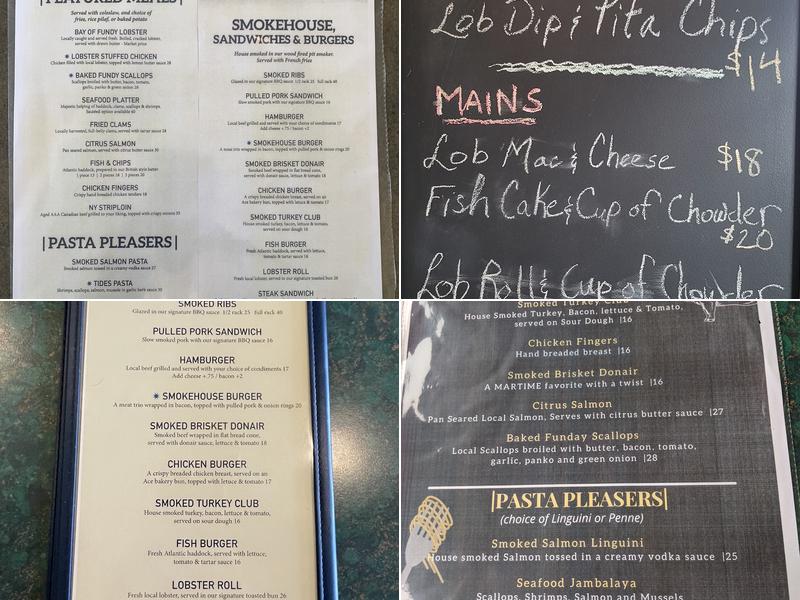 FEATURED MEALS
Served with coleslaw, and choice of
fries, rice pilaf, or baked potato
BAY OF FUNDY LOBSTER
Locally caught and served fresh. Boiled, cracked lobster,
served with drawn butter - Market price
LOBSTER STUFFED CHICKEN
Chicken filled with local lobster, topped with lemon butter sauce 28
BAKED FUNDY SCALLOPS
Scallops broiled with butter, bacon, tomato,
garlic, panko & green onion 28
SEAFOOD PLATTER
Majestic helping of haddock, clams, scallops & shrimps.
Sauteed option available 40
FRIED CLAMS
Locally harvested, full-belly clams, served with tartar sauce 28
CITRUS SALMON
Pan seared salmon, served with citrus butter sauce 30
FISH & CHIPS
Atlantic haddock, prepared in our British style batter
1 piece 13 | 2 pieces 18 | 3 pieces 20
CHICKEN FINGERS
Crispy hand breaded chicken tenders 18
NY STRIPLOIN
Aged AAA Canadian beef grilled to your liking, topped with crispy onions 35
|PASTA PLEASERS|
SMOKED SALMON PASTA
Smoked salmon tossed in a creamy vodka sauce 27
TIDES PASTA
Shrimps, scallops, salmon, mussels in garlic herb sauce 30
SMOKEHOUSE,
SANDWICHES & BURGERS
House smoked in our wood fired pit smoker.
Served with French fries
SMOKED RIBS
Glazed in our signature BBQ sauce 1/2 rack 25 full rack 40
PULLED PORK SANDWICH
Slow smoked pork with our signature BBQ sauce 16
HAMBURGER
Local beef grilled and served with your choice of condiments 17
Add cheese +.75 / bacon +2
SMOKEHOUSE BURGER
A meat trio wrapped in bacon, topped with pulled pork & onion rings 20
SMOKED BRISKET DONAIR
Smoked beef wrapped in flat bread cone,
served with donair sauce, lettuce & tomato 18
CHICKEN BURGER
A crispy breaded chicken breast, served on an
Ace bakery bun, topped with lettuce & tomato 17
SMOKED TURKEY CLUB
House smoked turkey, bacon, lettuce & tomato,
served on sour dough 16
FISH BURGER
Fresh Atlantic haddock, served with lettuce,
tomato & tartar sauce 16
LOBSTER ROLL
Fresh local lobster, served in our signature toasted bun 26
STEAK SANDWICH
Lob Dip & Pita Chips
$14
MAINS
Lob Mac & Cheese $18
Fish Cake & Cup of Chowder
$20
Lob Roll & Cup of Chowder
SMOKED RIBS
Glazed in our signature BBQ sauce 1/2 rack 25 full rack 40
PULLED PORK SANDWICH
Slow smoked pork with our signature BBQ sauce 16
HAMBURGER
Local beef grilled and served with your choice of condiments 17
Add cheese +.75 / bacon +2
SMOKEHOUSE BURGER
A meat trio wrapped in bacon, topped with pulled pork & onion rings 20
SMOKED BRISKET DONAIR
Smoked beef wrapped in flat bread cone,
served with donair sauce, lettuce & tomato 18
CHICKEN BURGER
A crispy breaded chicken breast, served on an
Ace bakery bun, topped with lettuce & tomato 17
SMOKED TURKEY CLUB
House smoked turkey, bacon, lettuce & tomato,
served on sour dough 16
FISH BURGER
Fresh Atlantic haddock, served with lettuce,
tomato & tartar sauce 16
LOBSTER ROLL
Fresh local lobster, served in our signature toasted bun 26
Smoked Turkey Club
House Smoked Turkey, Bacon, lettuce & Tomato,
served on Sour Dough |16
Chicken Fingers
Hand breaded breast |16
Smoked Brisket Donair
A MARTIME favorite with a twist |16
Citrus Salmon
Pan Seared Local Salmon, Serves with citrus butter sauce |27
Baked Funday Scallops
Local Scallops broiled with butter, bacon, tomato,
garlic, panko and green onion |28
|PASTA PLEASERS|
(choice of Linguini or Penne)
Smoked Salmon Linguini
House smoked Salmon tossed in a creamy vodka sauce |25
Seafood Jambalaya
Scallops, Shrimps, Salmon and Mussels